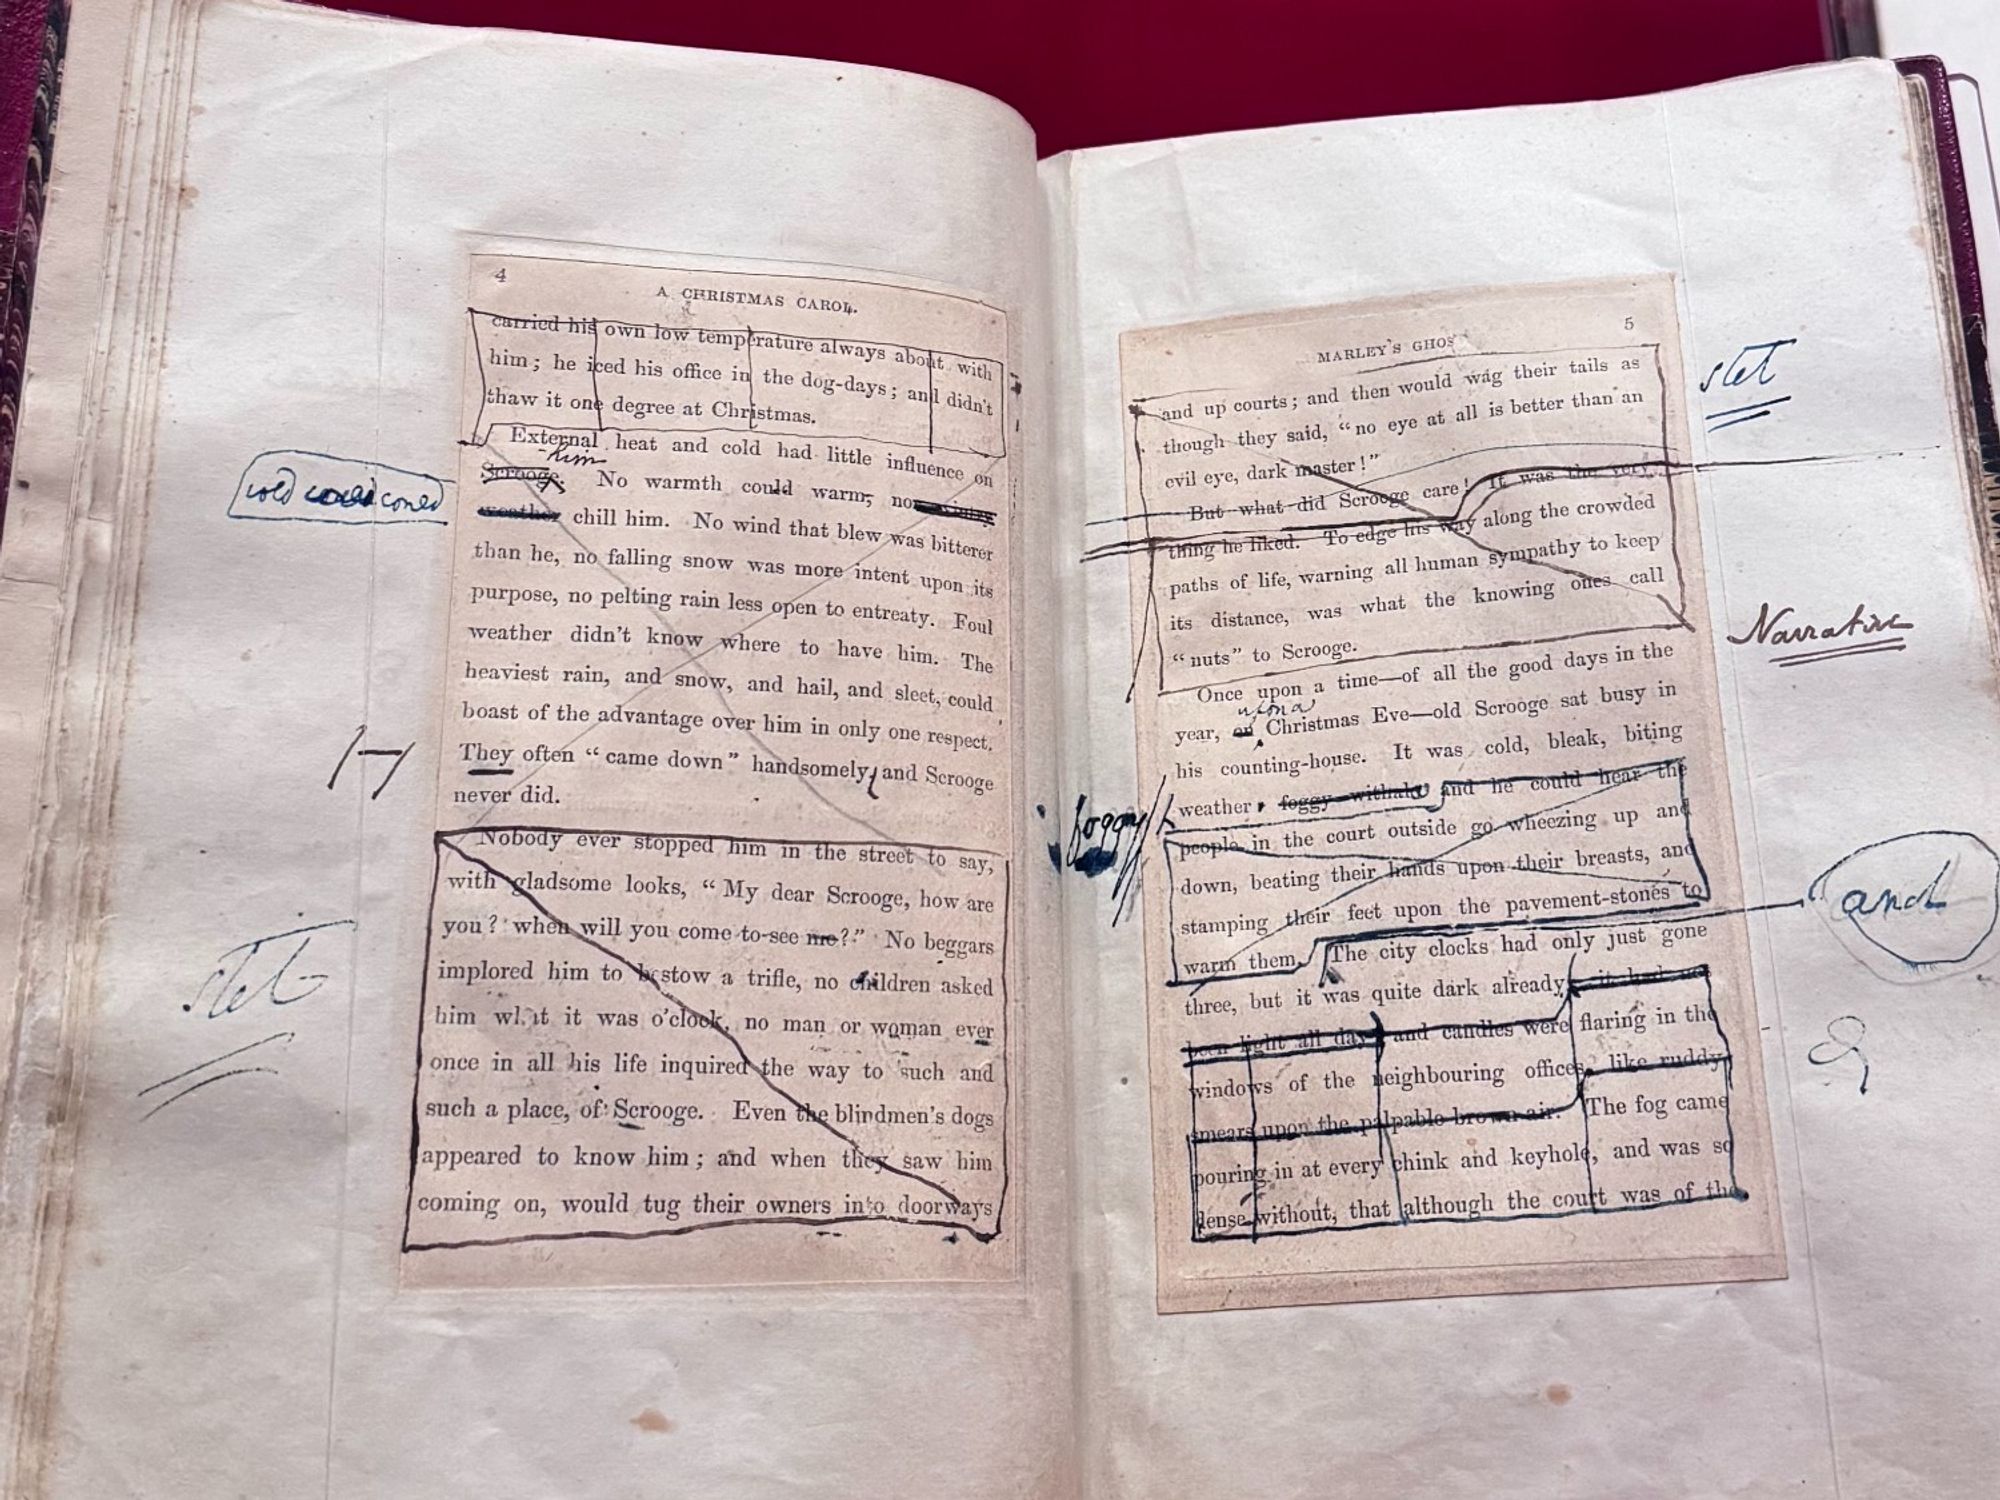 4
A CHRISTMAS CAROL.
carried his own low temperature always about with
him; he iced his office in the dog-days; and didn't
thaw it one degree at Christmas.
External heat and cold had little influence on
him
Scrooge. No warmth could warm, no wintry
weather chill him. No wind that blew was bitterer
than he, no falling snow was more intent upon its
purpose, no pelting rain less open to entreaty. Foul
weather didn't know where to have him. The
heaviest rain, and snow, and hail, and sleet, could
boast of the advantage over him in only one respect.
They often "came down" handsomely, and Scrooge
never did.
Nobody ever stopped him in the street to say,
with gladsome looks, "My dear Scrooge, how are
you? when will you come to see me?" No beggars
implored him to bestow a trifle, no children asked
him what it was o'clock, no man or woman ever
once in all his life inquired the way to such and
such a place, of Scrooge. Even the blindmen's dogs
appeared to know him; and when they saw him
coming on, would tug their owners into doorways
cold
stet
5
MARLEY'S GHOST
and up courts; and then would wag their tails as
though they said, "no eye at all is better than an
evil eye, dark master!"
But what did Scrooge care! It was the very
thing he liked. To edge his way along the crowded
paths of life, warning all human sympathy to keep
its distance, was what the knowing ones call
"nuts" to Scrooge.
Once upon a time—of all the good days in the
upon a
year, on Christmas Eve—old Scrooge sat busy in
his counting-house. It was cold, bleak, biting
weather, foggy withal: and he could hear the
people in the court outside go wheezing up and
down, beating their hands upon their breasts, and
stamping their feet upon the pavement-stones to
warm them. The city clocks had only just gone
three, but it was quite dark already: it had not
been light all day: and candles were flaring in the
windows of the neighbouring offices, like ruddy
smears upon the palpable brown air. The fog came
pouring in at every chink and keyhole, and was so
dense without, that although the court was of the
foggy
stet
Narrative
and